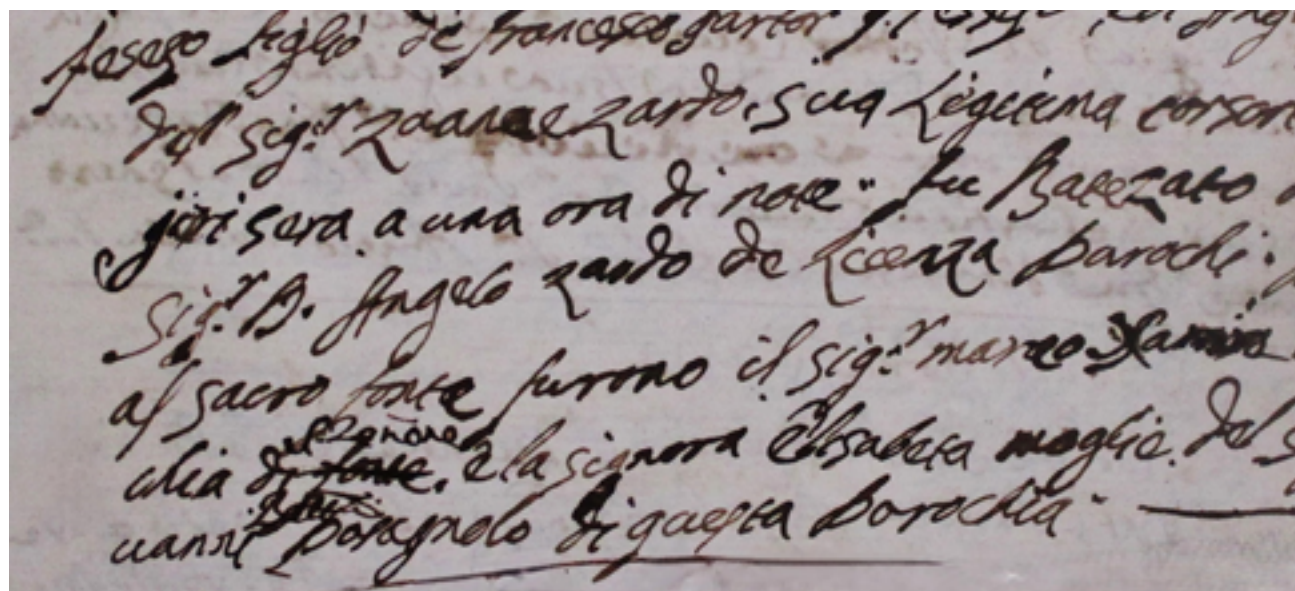 figlio de Francesco
del sig.r Zuanne Zardo, sua Legitima consor
jeri sera a una ora di note fu Batezato
sig.r D. Angelo Zardo de Licenza Parochi.
al sacro fonte furono il sig.r marco
del Zoñane
chia e la signora Elisabeta moglie del
uanni di questa Parochia